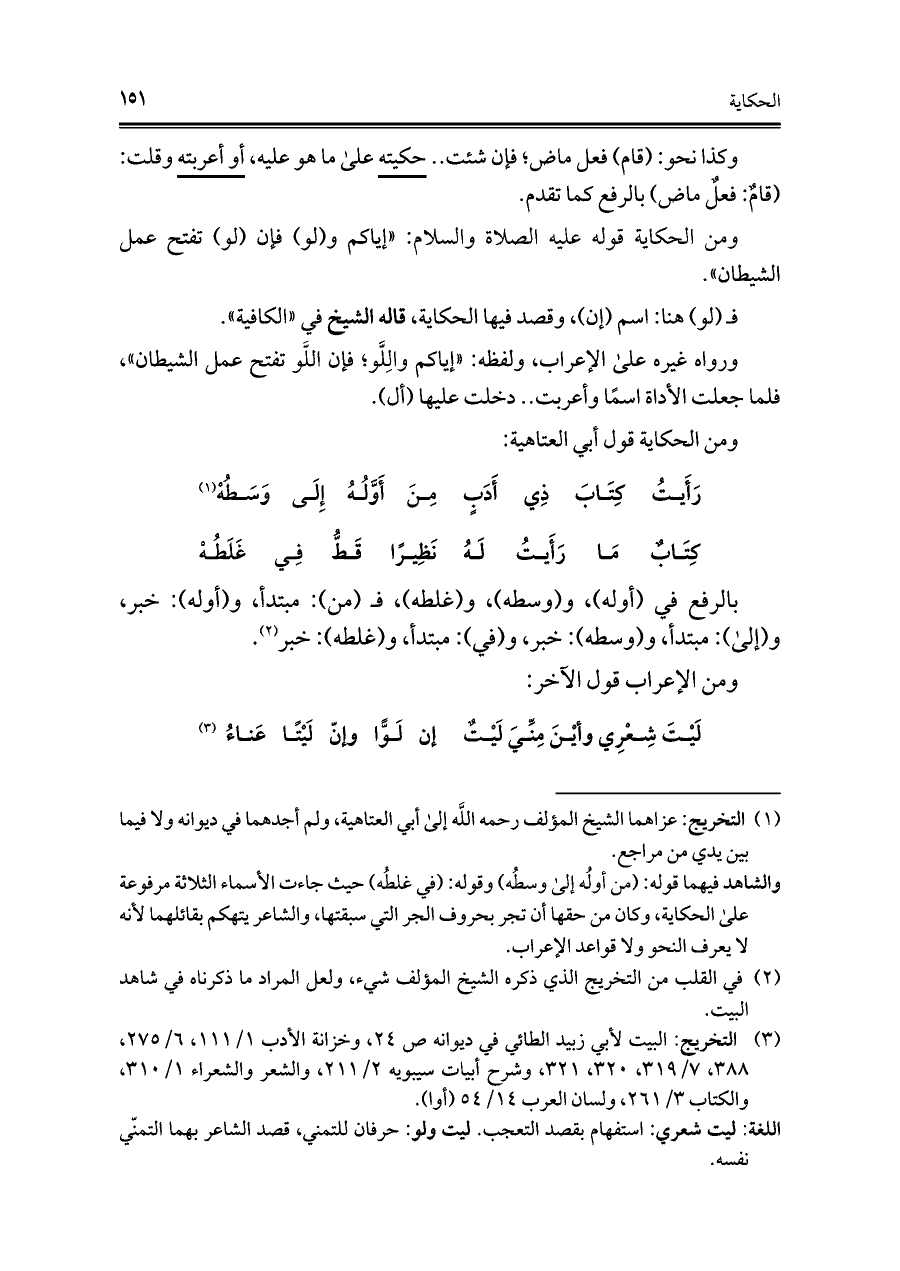 الحكاية ١٥١
وكذا نحو: (قام) فعل ماض؛ فإن شئت.. حكيته علىٰ ما هو عليه، أو أعربته وقلت:
(قامٌ: فعلٌ ماض) بالرفع كما تقدم.
ومن الحكاية قوله عليه الصلاة والسلام: «إياكم و(لو) فإن (لو) تفتح عمل
الشيطان».
فـ (لو) هنا: اسم (إن)، وقصد فيها الحكاية، قاله الشيخ في «الكافية».
ورواه غيره علىٰ الإعراب، ولفظه: «إياكم واللَّو؛ فإن اللَّو تفتح عمل الشيطان»،
فلما جعلت الأداة اسمًا وأعربت.. دخلت عليها (أل).
ومن الحكاية قول أبي العتاهية:
رَأَيـتُ كِتَـابَ ذِي أَدَبٍ مِـنَ أَوَّلُـهُ إِلَـى وَسَـطُهْ(١)
كِتَـابٌ مَـا رَأَيـتُ لَـهُ نَظِيـرًا قَـطُّ فِـي غَلَطُـهْ
بالرفع في (أوله)، و(وسطه)، و(غلطه)، فـ (من): مبتدأ، و(أوله): خبر،
و(إلىٰ): مبتدأ، و(وسطه): خبر، و(في): مبتدأ، و(غلطه): خبر(٢).
ومن الإعراب قول الآخر:
لَيْـتَ شِـعْرِي وأيْـنَ مِنِّـيَ لَيْـتٌ إن لَـوًّا وإنّ لَيْتًـا عَنـاءُ (٣)
(١) التخريج: عزاهما الشيخ المؤلف رحمه اللَّه إلىٰ أبي العتاهية، ولم أجدهما في ديوانه ولا فيما
بين يدي من مراجع.
والشاهد فيهما قوله: (من أولُه إلىٰ وسطُه) وقوله: (في غلطُه) حيث جاءت الأسماء الثلاثة مرفوعة
علىٰ الحكاية، وكان من حقها أن تجر بحروف الجر التي سبقتها، والشاعر يتهكم بقائلهما لأنه
لا يعرف النحو ولا قواعد الإعراب.
(٢) في القلب من التخريج الذي ذكره الشيخ المؤلف شيء، ولعل المراد ما ذكرناه في شاهد
البيت.
(٣) التخريج: البيت لأبي زبيد الطائي في ديوانه ص ٢٤، وخزانة الأدب ١/ ١١١، ٦/ ٢٧٥،
٣٨٨، ٧/ ٣١٩، ٣٢٠، ٣٢١، وشرح أبيات سيبويه ٢/ ٢١١، والشعر والشعراء ١/ ٣١٠،
والكتاب ٣/ ٢٦١، ولسان العرب ١٤/ ٥٤ (أوا).
اللغة: ليت شعري: استفهام بقصد التعجب. ليت ولو: حرفان للتمني، قصد الشاعر بهما التمنّي
نفسه.